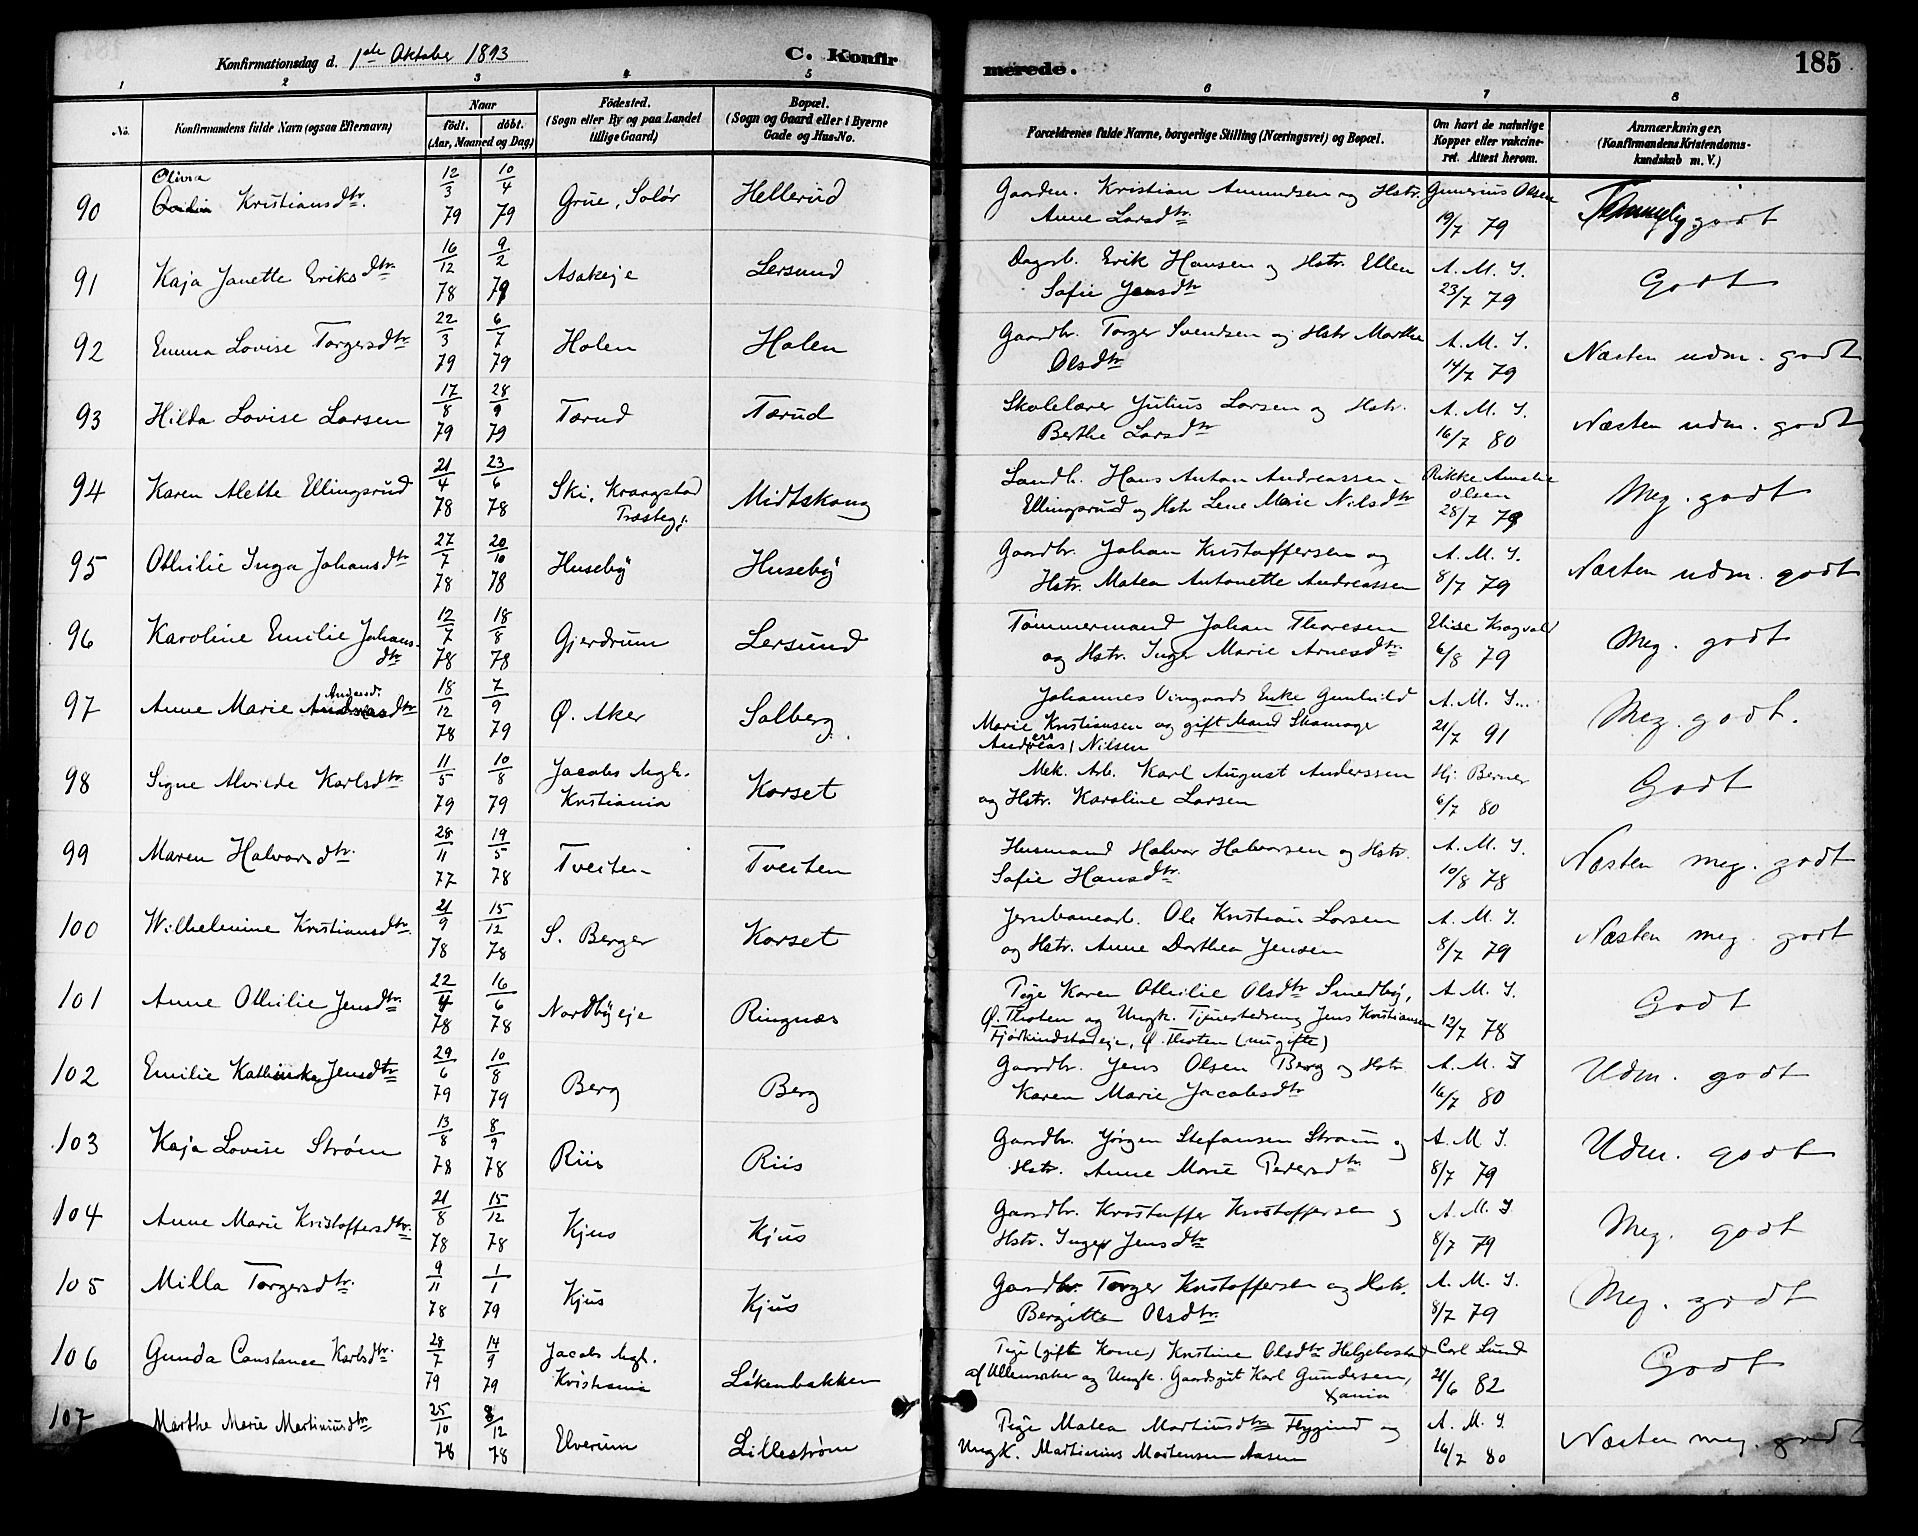 Konfirmationsdag d. 1ste Oktober 1893 C. Konfirmerede. 185
1 2 3 4 5 6 7 8
No. Konfirmandens fulde Navn (ogsaa Efternavn) Naar født, døbt. (Aar, Maaned og Dag) Fødested. (Sogn eller By og paa Landet tillige Gaard) Bopæl. (Sogn og Gaard eller i Byerne Gade og Hus-No. Forældrenes fulde Navne, borgerlige Stilling (Næringsvei) og Bopæl. Om havt de naturlige Kopper eller vakcineret. Attest herom. Anmærkninger. (Konfirmandens Kristendomskundskab m. V.)
90 Olivia Kristiansdtr. 12/3 79 10/4 79 Grue, Solør Hellerud Gaardm. Kristian Amundsen og Hstr. Anne Larsdtr Gunerius Olsen 19/7 79 Temmelig godt
91 Kaja Janette Eriksdtr. 16/12 78 9/2 79 Asakeje Lersund Dagarb. Erik Hansen og Hstr. Ellen Sofie Jensdtr A. M. I. 23/7 79 Godt
92 Emma Lovise Torgersdtr 22/3 79 6/7 79 Holen Holen Gaardbr. Torger Svendsen og Hstr Marthe Olsdtr A. M. I. 14/7 79 Næsten udm. godt
93 Hilda Lovise Larsen 17/8 79 28/9 79 Tærud Tærud Skolelærer Julius Larsen og Hstr. Berthe Larsdtr A. M. I. 16/7 80 Næsten udm. godt
94 Karen Alette Ellingsrud 21/4 78 23/6 78 Ski, Kraagstad Præsteg. Midtskoug Landh. Hans Anton Andreassen Ellingsrud og Hstr Lene Marie Nilsdtr Rikke Amalie Olsen 28/7 79 Meg. godt
95 Othilie Inga Johansdtr 27/7 78 20/10 78 Huseby Huseby Gaardbr. Johan Kristoffersen og Hstr. Matea Antonette Andreassen A. M. I. 8/7 79 Næsten udm. godt
96 Karoline Emilie Johansdtr 12/7 78 18/8 78 Gjerdrum Lersund Tømmermand Johan Thoresen og Hstr. Inger Marie Arnesdtr. Elise Kragvald 6/8 79 Meg. godt
97 Anne Marie Andersdtr 18/12 78 7/9 79 Ø. Aker Solberg Johannes Vingaards Enke Gunhild Marie Kristiansen og gift Mand Skomager Anders Nilsen A. M. I. 21/7 91 Meg. godt.
98 Signe Alvilde Karlsdtr. 11/5 79 10/8 79 Jacobs Mgh. Kristiania Korset Mek. Arb. Karl August Anderssen og Hstr. Karoline Larsen Hj. Berner 6/7 80 Godt
99 Maren Halvorsdtr. 28/11 77 19/5 78 Tveiten Tveiten Husmand Halvor Halvorsen og Hstr. Sofie Hansdtr. A. M. I. 10/8 78 Næsten meg. godt
100 Wilhelmine Kristiansdtr. 21/9 78 15/12 78 S. Berger Korset Jernbanearb. Ole Kristian Larsen og Hstr. Anne Dorthea Jensen A. M. I. 8/7 79 Næsten meg. godt
101 Anne Othilie Jensdtr. 22/4 78 16/6 78 Nordby eje Ringnæs Pige Karen Othilie Olsdtr Smedby, Ø. Thoten og Ungk. Tjenestedreng Jens Kristiansen Fjørkindstadeje, Ø. Thoten (nu gifte) A. M. I. 12/7 78 Godt
102 Emilie Kathinka Jensdtr 29/6 79 10/8 79 Berg Berg Gaardbr. Jens Olsen Berg og Hstr Karen Marie Jacobsdtr A. M. I 16/7 80 Udm. godt
103 Kaja Lovise Strøm 13/8 78 8/9 78 Riis Riis Gaardbr. Jørgen Stefansen Strøm og Hstr. Anne Marie Pedersdtr A. M I. 8/7 79 Udm. godt
104 Anne Marie Kristoffersdtr. 21/8 78 15/12 78 Kjus Kjus Gaardbr. Kristoffer Kristoffersen og Hstr. Inger Jensdtr A. M. I 8/7 79 Meg. godt
105 Milla Torgersdtr. 9/11 78 1/1 79 Kjus Kjus Gaardbr. Torger Kristoffersen og Hstr. Bergitte Olsdtr. A. M. I. 8/7 79 Meg. godt
106 Gunda Constance Karlsdtr. 28/7 79 14/9 79 Jacobs Mgh. Kristiania Løkenbakken Pige (gift Kone) Kristine Olsdtr Helgebostad af Ullensaker og Ungk. Gaardsgut Karl Gundersen, Xania Carl Lund 21/6 82 Godt
107 Marthe Marie Martiniusdtr 25/10 78 8/12 78 Elverum Lillestrøm Pige Matea Martiusdtr Flygind og Ungk. Martinius Mortensen Aasen A. M. I. 16/7 80 Næsten meg. godt